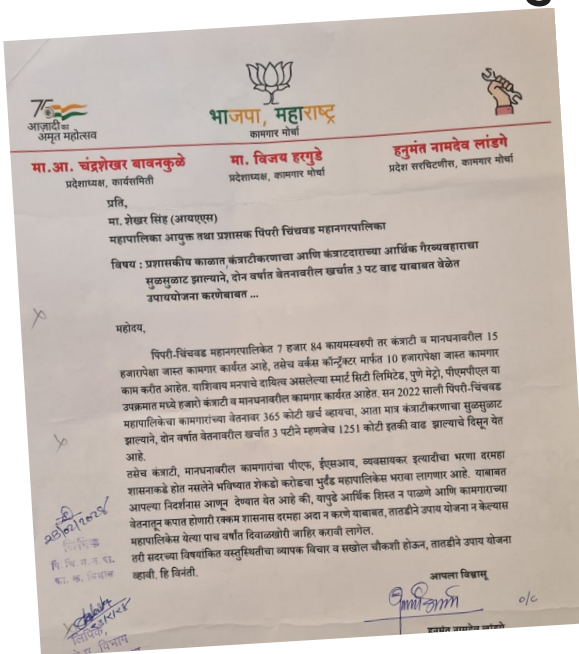 75
आज़ादी का
अमृत महोत्सव
भाजपा, महाराष्ट्र
कामगार मोर्चा
मा.आ. चंद्रशेखर बावनकुळे
प्रदेशाध्यक्ष, कार्यसमिती
मा. विजय हरगुडे
प्रदेशाध्यक्ष, कामगार मोर्चा
हनुमंत नामदेव लांडगे
प्रदेश सरचिटणीस, कामगार मोर्चा
प्रति,
मा. शेखर सिंह (आयएएस)
महापालिका आयुक्त तथा प्रशासक पिंपरी चिंचवड महानगरपालिका
विषय : प्रशासकीय काळात कंत्राटीकरणाचा आणि कंत्राटदाराच्या आर्थिक गैरव्यवहाराचा
सुळसुळाट झाल्याने, दोन वर्षात वेतनावरील खर्चात 3 पट वाढ याबाबत वेळेत
उपाययोजना करणेबाबत ...
महोदय,
पिंपरी-चिंचवड महानगरपालिकेत 7 हजार 84 कायमस्वरुपी तर कंत्राटी व मानधनावरील 15
हजारापेक्षा जास्त कामगार कार्यरत आहे, तसेच वर्कस कॉन्ट्रॅक्टर मार्फत 10 हजारापेक्षा जास्त कामगार
काम करीत आहेत. याशिवाय मनपाचे दायित्व असलेल्या स्मार्ट सिटी लिमिटेड, पुणे मेट्रो, पीएमपीएल या
उपक्रमात मध्ये हजारो कंत्राटी व मानधनावरील कामगार कार्यरत आहेत. सन 2022 साली पिंपरी-चिंचवड
महापालिकेचा कामगारांच्या वेतनावर 365 कोटी खर्च व्हायचा, आता मात्र कंत्राटीकरणाचा सुळसुळाट
झाल्याने, दोन वर्षात वेतनावरील खर्चात 3 पटीने म्हणजेच 1251 कोटी इतकी वाढ झाल्याचे दिसून येत
आहे.
तसेच कंत्राटी, मानधनावरील कामगारांचा पीएफ, ईएसआय, व्यवसायकर इत्यादीचा भरणा दरमहा
शासनाकडे होत नसलेने भविष्यात शेकडो करोडचा भुर्दंड महापालिकेस भरावा लागणार आहे. याबाबत
आपल्या निदर्शनास आणून देण्यात येत आहे की, यापुढे आर्थिक शिस्त न पाळणे आणि कामगाराच्या
वेतनातून कपात होणारी रक्कम शासनास दरमहा अदा न करणे याबाबत, तातडीने उपाय योजना न केल्यास
महापालिकेस येत्या पाच वर्षात दिवाळखोरी जाहिर करावी लागेल.
तरी सदरच्या विषयांकित वस्तुस्थितीचा व्यापक विचार व सखोल चौकशी होऊन, तातडीने उपाय योजना
व्हावी. हि विनंती.
आपला विश्वासू
o/c
हनुमंत नामदेव लांडगे
23/02/2024
लिपिक
पिं. चिं. म. न. पा.
का. क. विभाग
लिपिक,
विभाग